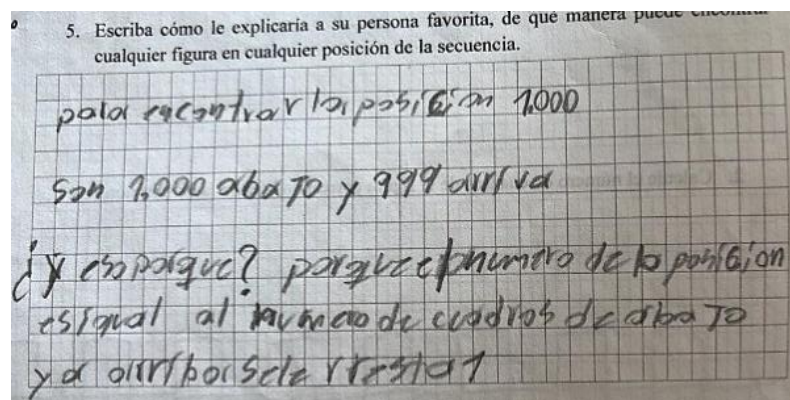 5. Escriba cómo le explicaría a su persona favorita, de qué manera puede
cualquier figura en cualquier posición de la secuencia.
para encontrar la posición 1.000
Son 1.000 abajo y 999 arriva
¿Y eso porque? porque el numero de la posición
es igual al numero de cuadros de abajo
y a arriba se le resta 1